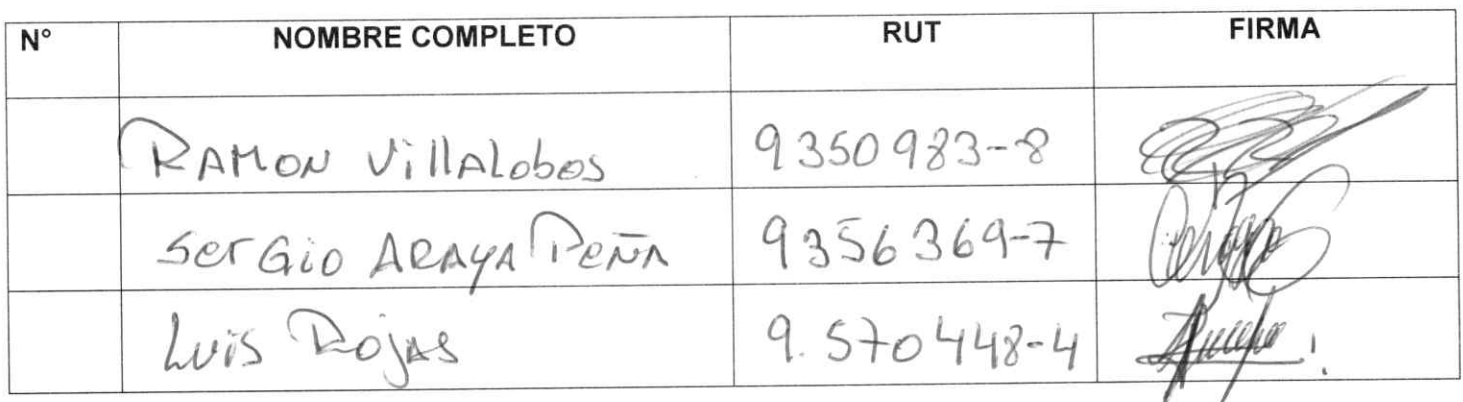 N° NOMBRE COMPLETO RUT FIRMA
RAMON VillALobos 9350983-8
SerGio ARAYA PEÑA 9356369-7
Luis Rojas 9.570448-4